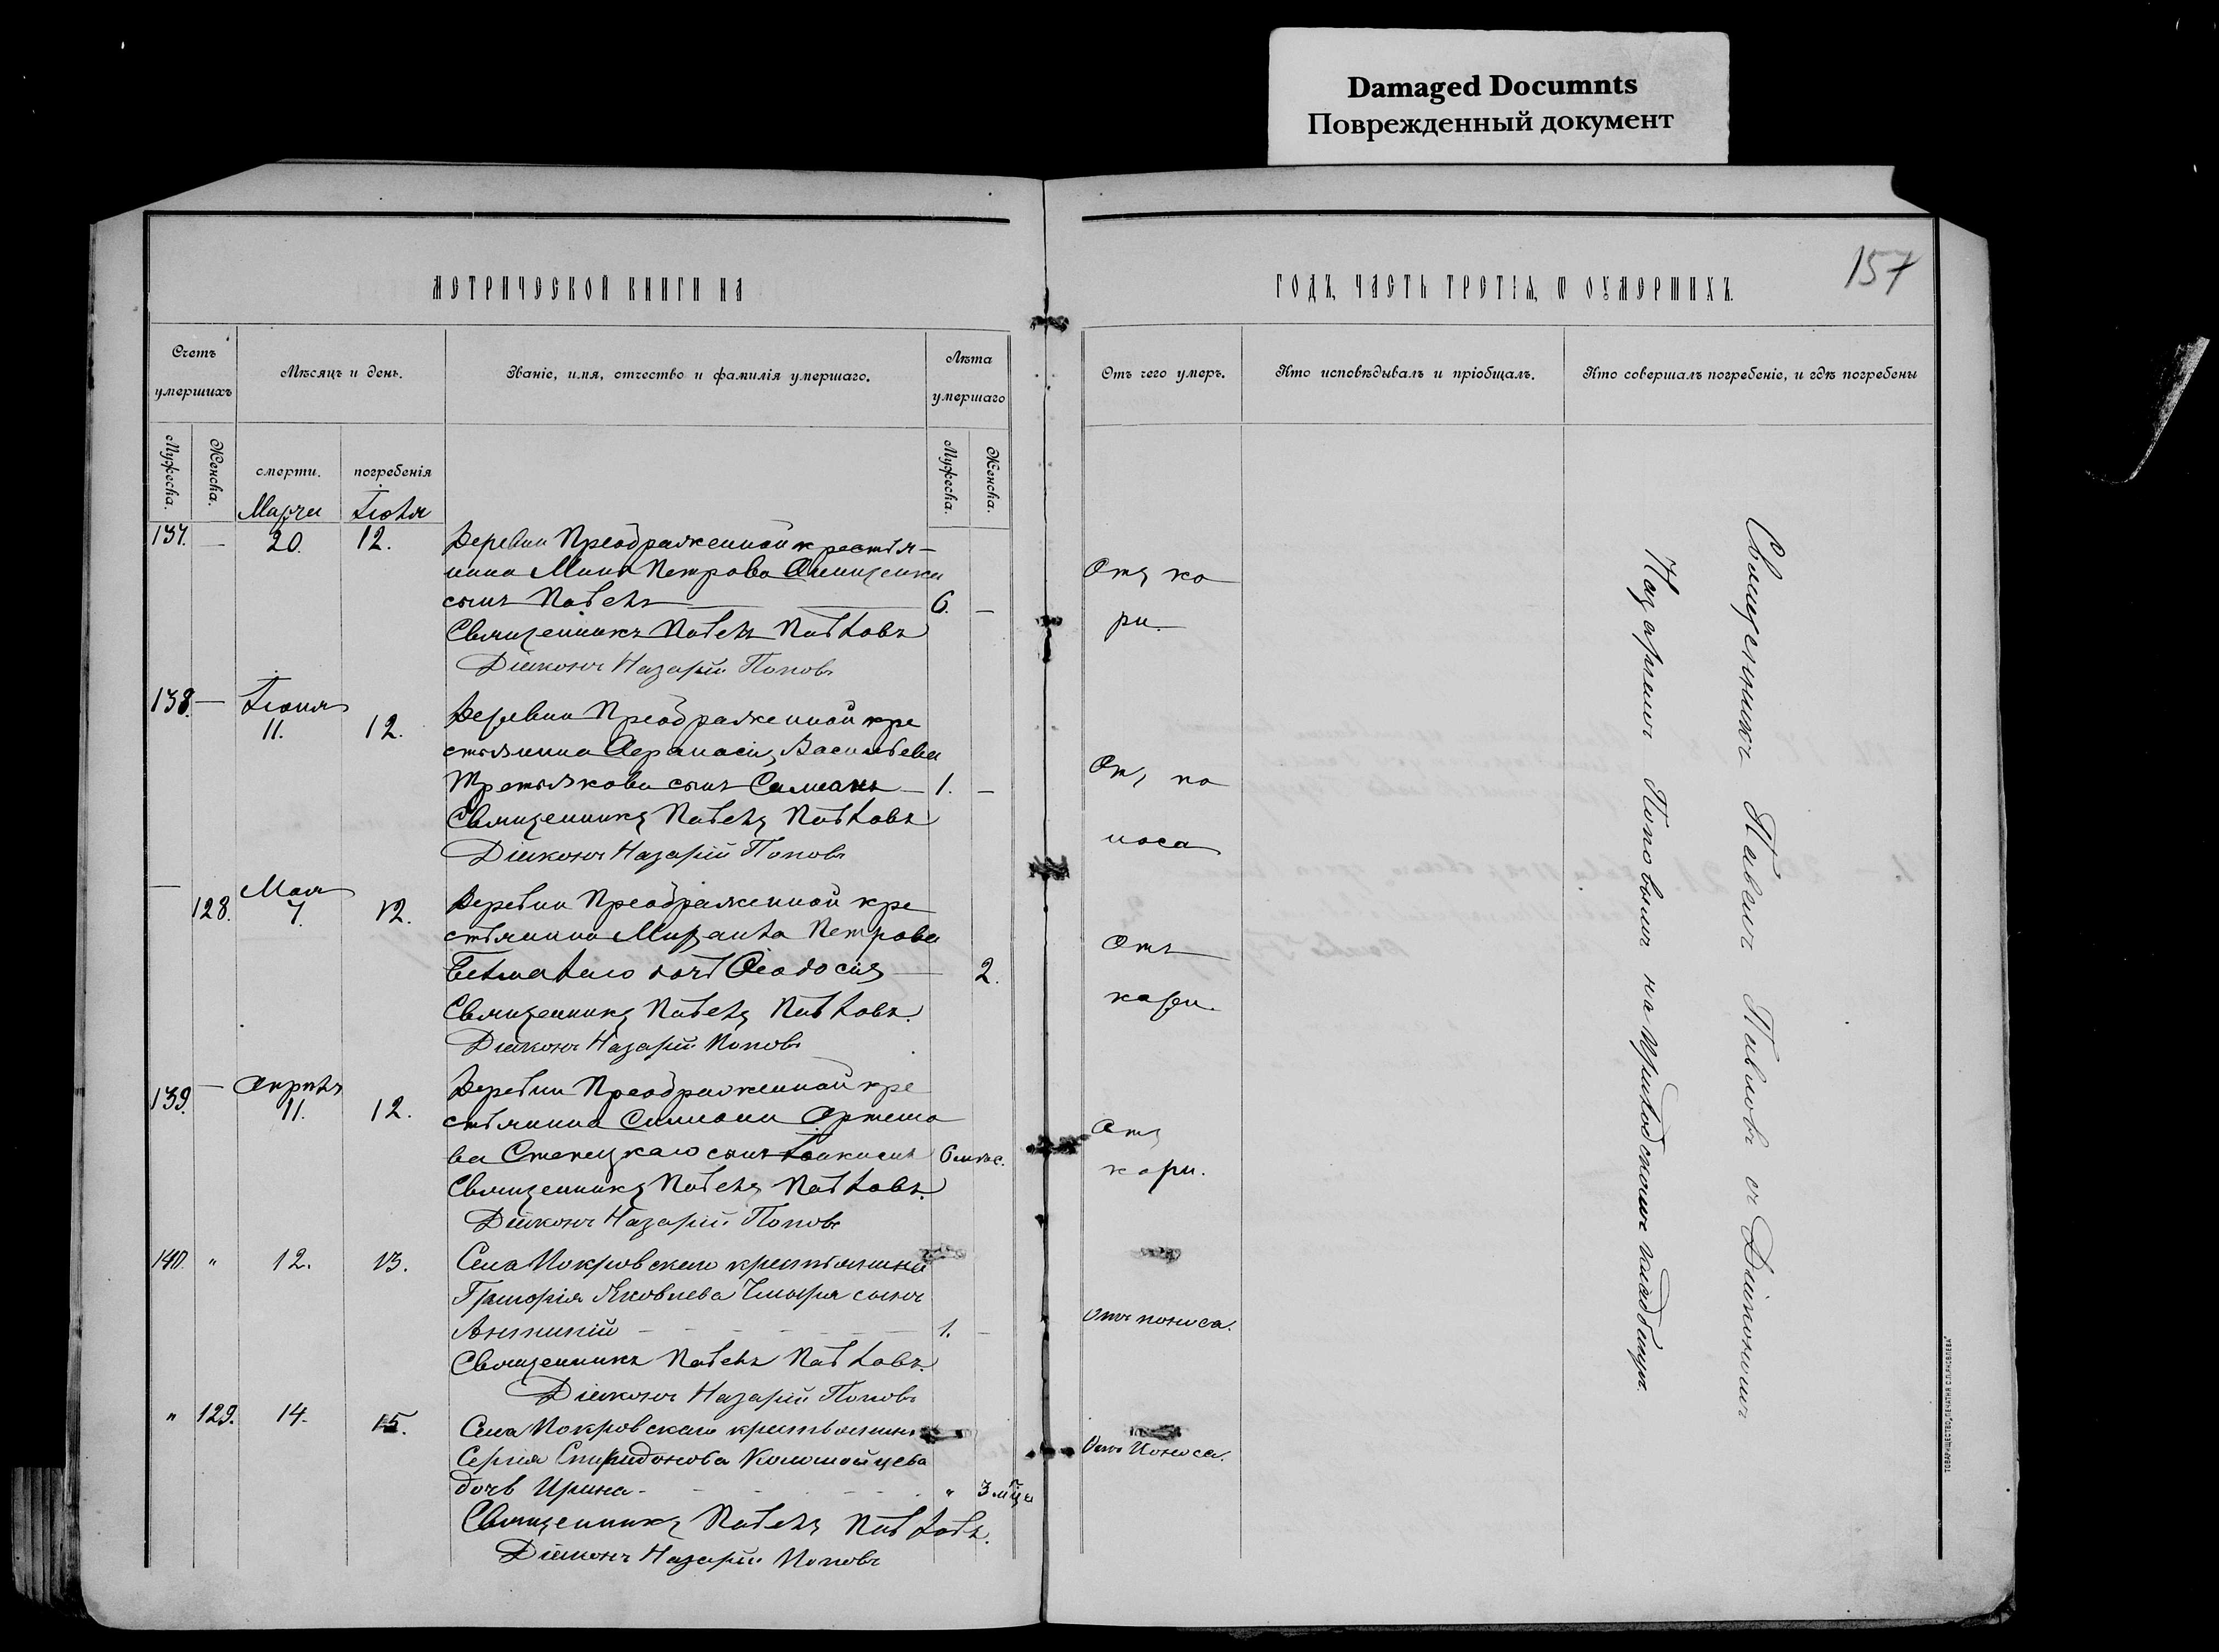 Damaged Documnts
Поврежденный документ
157
МЕТРИЧЕСКОЙ КНИГИ НА
ГОДЪ, ЧАСТЬ ТРЕТІЯ, Ѿ ОУМЕРШИХЪ.
Счетъ умершихъ
Мѣсяцъ и день.
Званіе, имя, отчество и фамилія умершаго.
Лѣта умершаго
Отъ чего умеръ.
Кто исповѣдывалъ и пріобщалъ.
Кто совершалъ погребеніе, и гдѣ погребены
Мужеска.
Женска.
смерти.
погребенія
Мужеска.
Женска.
Марта Іюня
137. — 20. 12. Деревни Преображенной крестья-
нина Мина Петрова Онищенка
сынъ Павелъ — 6. —
Отъ ко
ри.
Священникъ Павелъ Павловъ
Діаконъ Назарій Поповъ
138. — Іюня
11. 12. Деревни Преображенной кре
стьянина Афанасія Васильева
Третьякова сынъ Симеонъ — 1. —
Отъ по
носа
Священникъ Павелъ Павловъ
Діаконъ Назарій Поповъ
— 128. Мая
7. 12. Деревни Преображенной кре
стьянина Михаила Петрова
дочь Феодосія — 2.
Отъ
кори.
Священникъ Павелъ Павловъ.
Діаконъ Назарій Поповъ
139. — Апрѣля
11. 12. Деревни Преображенной кре
стьянина Симеона Артемо
ва Стенецкаго сынъ Іоакимъ 6 мѣс.
Отъ
кори.
Священникъ Павелъ Павловъ.
Діаконъ Назарій Поповъ
140. " 12. 13. Села Покровскаго крестьянина
Григорія Яковлева Чмыря сынъ
1. —
Отъ поноса.
Священникъ Павелъ Павловъ.
Діаконъ Назарій Поповъ
" 129. 14. 15. Села Покровскаго крестьянина
Сергія Спиридонова Коломойцева
дочь Ирина - " 3 мца
Отъ Поноса.
Священникъ Павелъ Павловъ.
Діаконъ Назарій Поповъ
Священникъ Павелъ Павловъ съ Діакономъ
Назаріемъ Поповымъ на приходскомъ кладбищѣ.
ТОВАРИЩЕСТВО „ПЕЧАТНЯ С.П.ЯКОВЛЕВА"